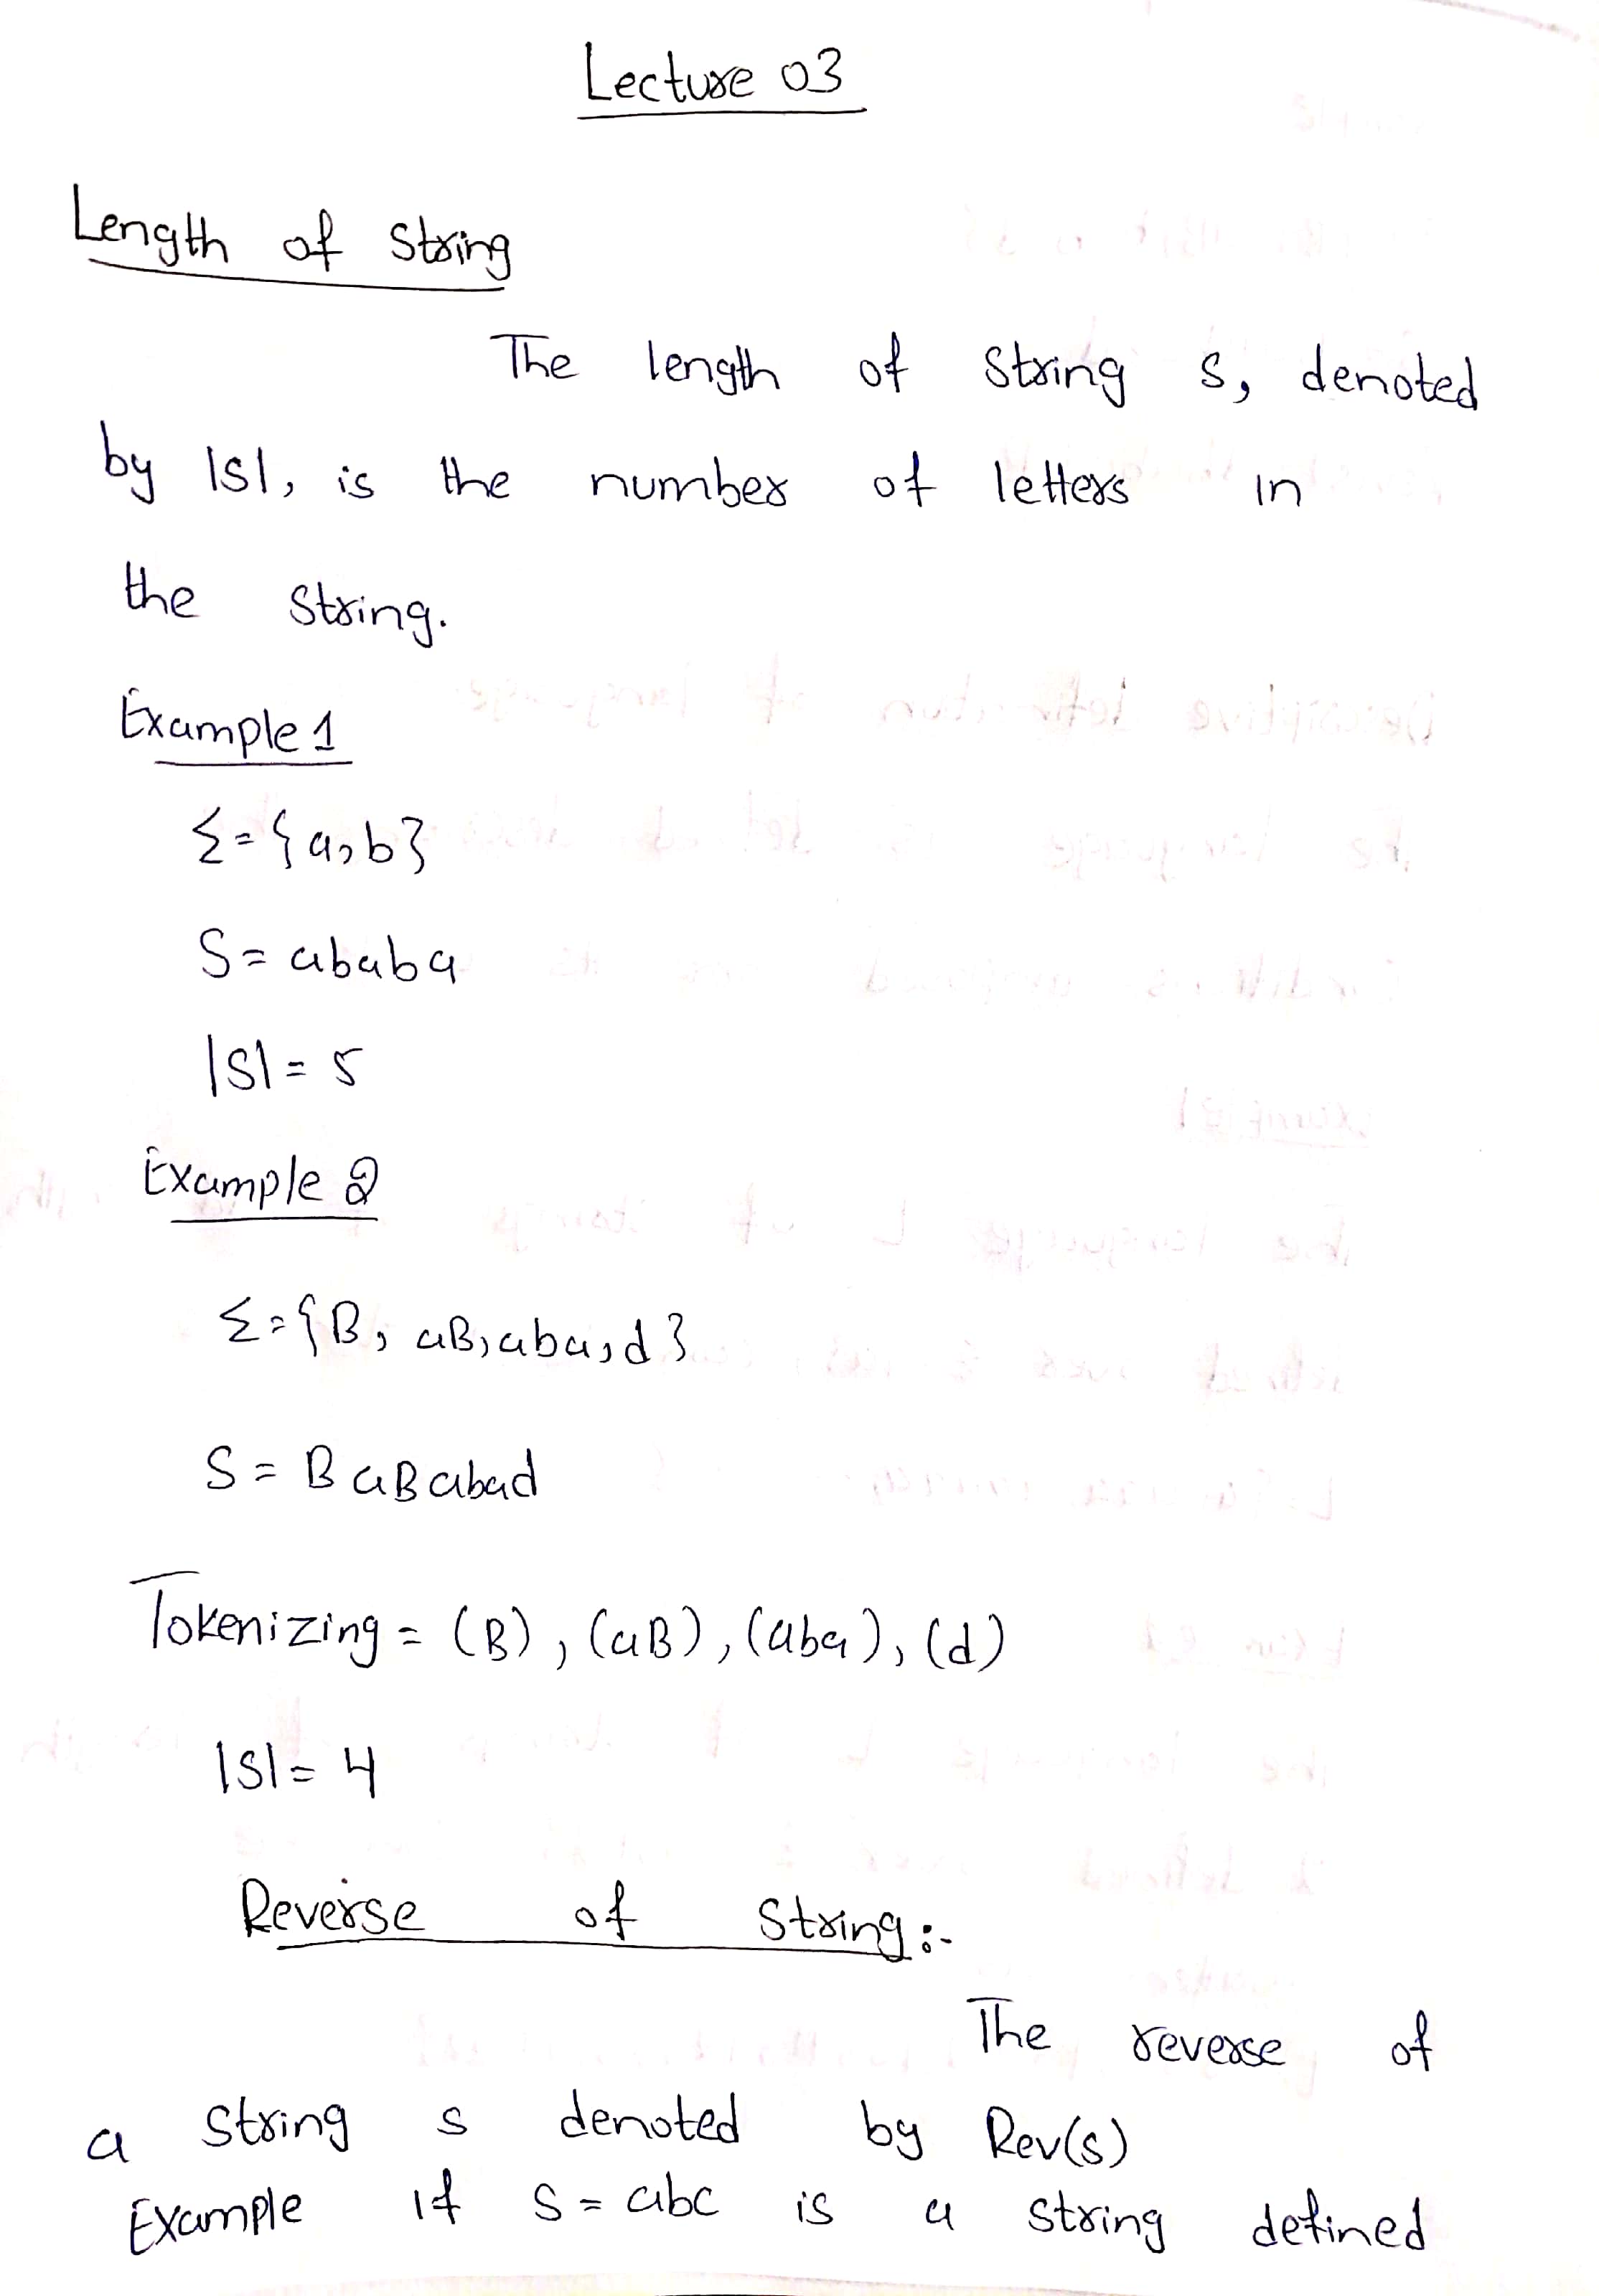 Lecture 03
Length of String
The length of String s, denoted
by |s|, is the number of letters in
the String.
Example 1
Σ={a,b}
S=ababa
|S|=5
Example 2
Σ={B, aB,aba,d}
S=BaBabad
Tokenizing=(B),(aB),(aba),(d)
|S|=4
Reverse of String:-
The reverse of
a string s denoted by Rev(s)
Example if s=abc is a string defined